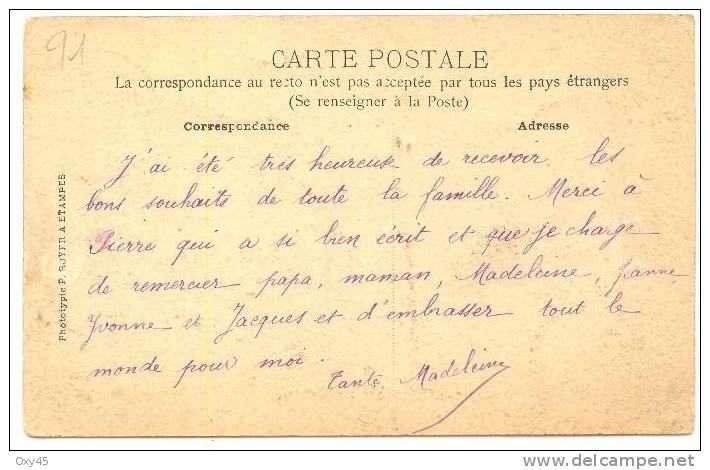 91
CARTE POSTALE
La correspondance au recto n'est pas acceptée par tous les pays étrangers
(Se renseigner à la Poste)
Correspondance
Adresse
J'ai été très heureuse de recevoir les
bons souhaits de toute la famille. Merci à
Pierre qui a si bien écrit et que je charge
de remercier papa, maman, Madeleine, Jeanne,
Yvonne et Jacques et d'embrasser tout le
monde pour moi.
Tante, Madeleine
Phototypie P. ROYER A ETAMPES
Oxy45
www.delcampe.net